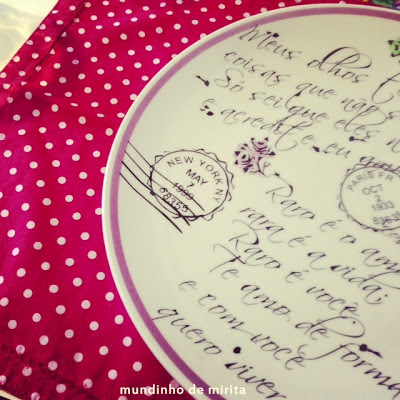 Meus olhos
coisas que não s
Só sei que eles n
e acredite, eu
NEW YORK NY
MAY
7
1999
68358
PARIS FR
OCT
2
Raro é o am
rara é a vida;
Raro é você
Te amo de forma
e com você
quero viver
mundinho de mirita